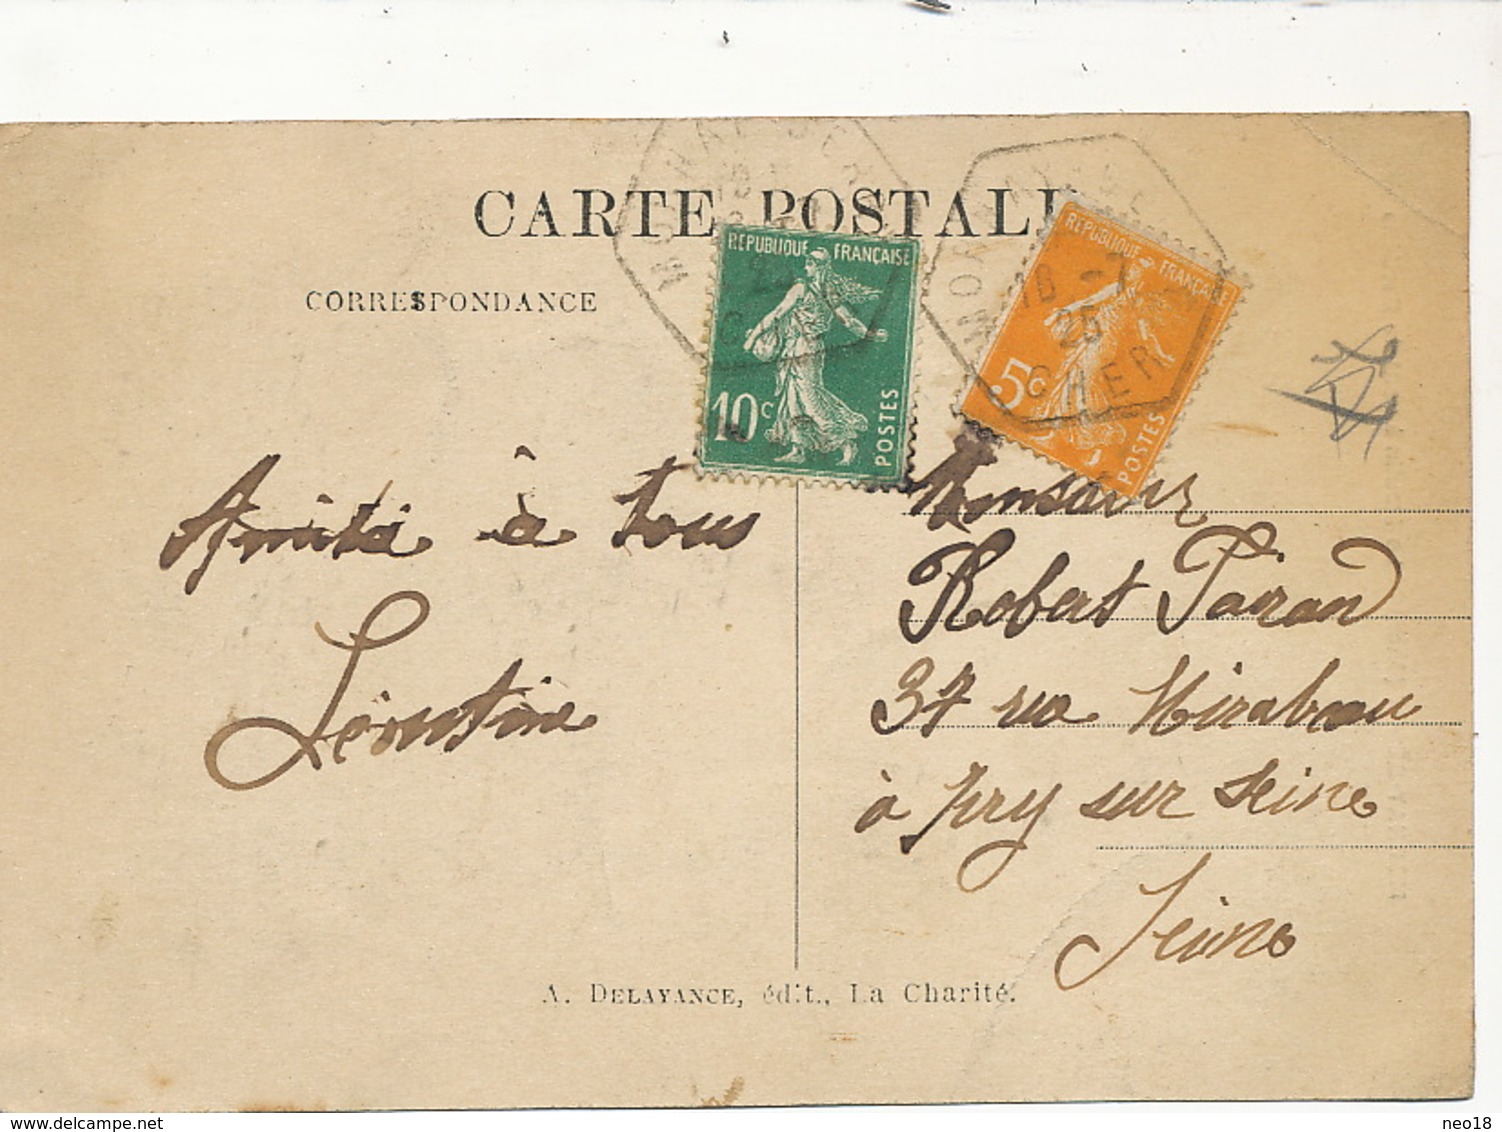 CARTE POSTALE
CORRESPONDANCE
REPUBLIQUE FRANÇAISE
10c
POSTES
REPUBLIQUE FRANÇAISE
5c
POSTES
10 -7
25
CHER
Amitié à tous
Léontine
Monsieur
Robert
37 rue Mirabeau
à Ivry sur Seine
Seine
A. DELAYANCE, édit., La Charité.
neo18